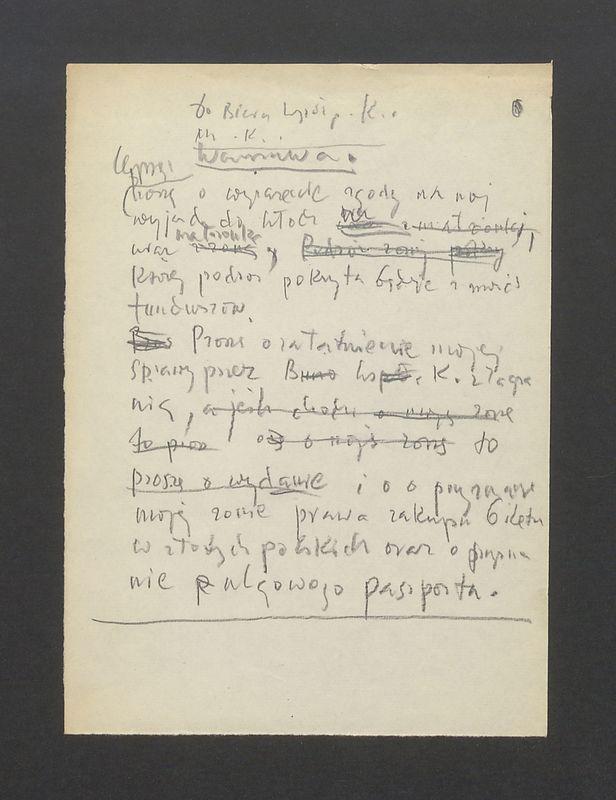 Do Biura Współp. K..
M. K..
Warszawa.
Uprzej
proszę o wyrażenie zgody na mój
wyjazd do Włoch z małżonką,
małżonką
wraz z żoną, Podróż żony
której podróż pokryta będzie z moich
funduszów.
Proszę o załatwienie mojej
sprawy przez Biuro Wsp. K. z Zagra
nicą, a jeśli chodzi o moją żonę
to proszę o moją żonę to
proszę o wydanie i o o przyznanie
mojej żonie prawa zakupu biletu
w złotych polskich oraz o przyzna
nie ulgowego paszportu.